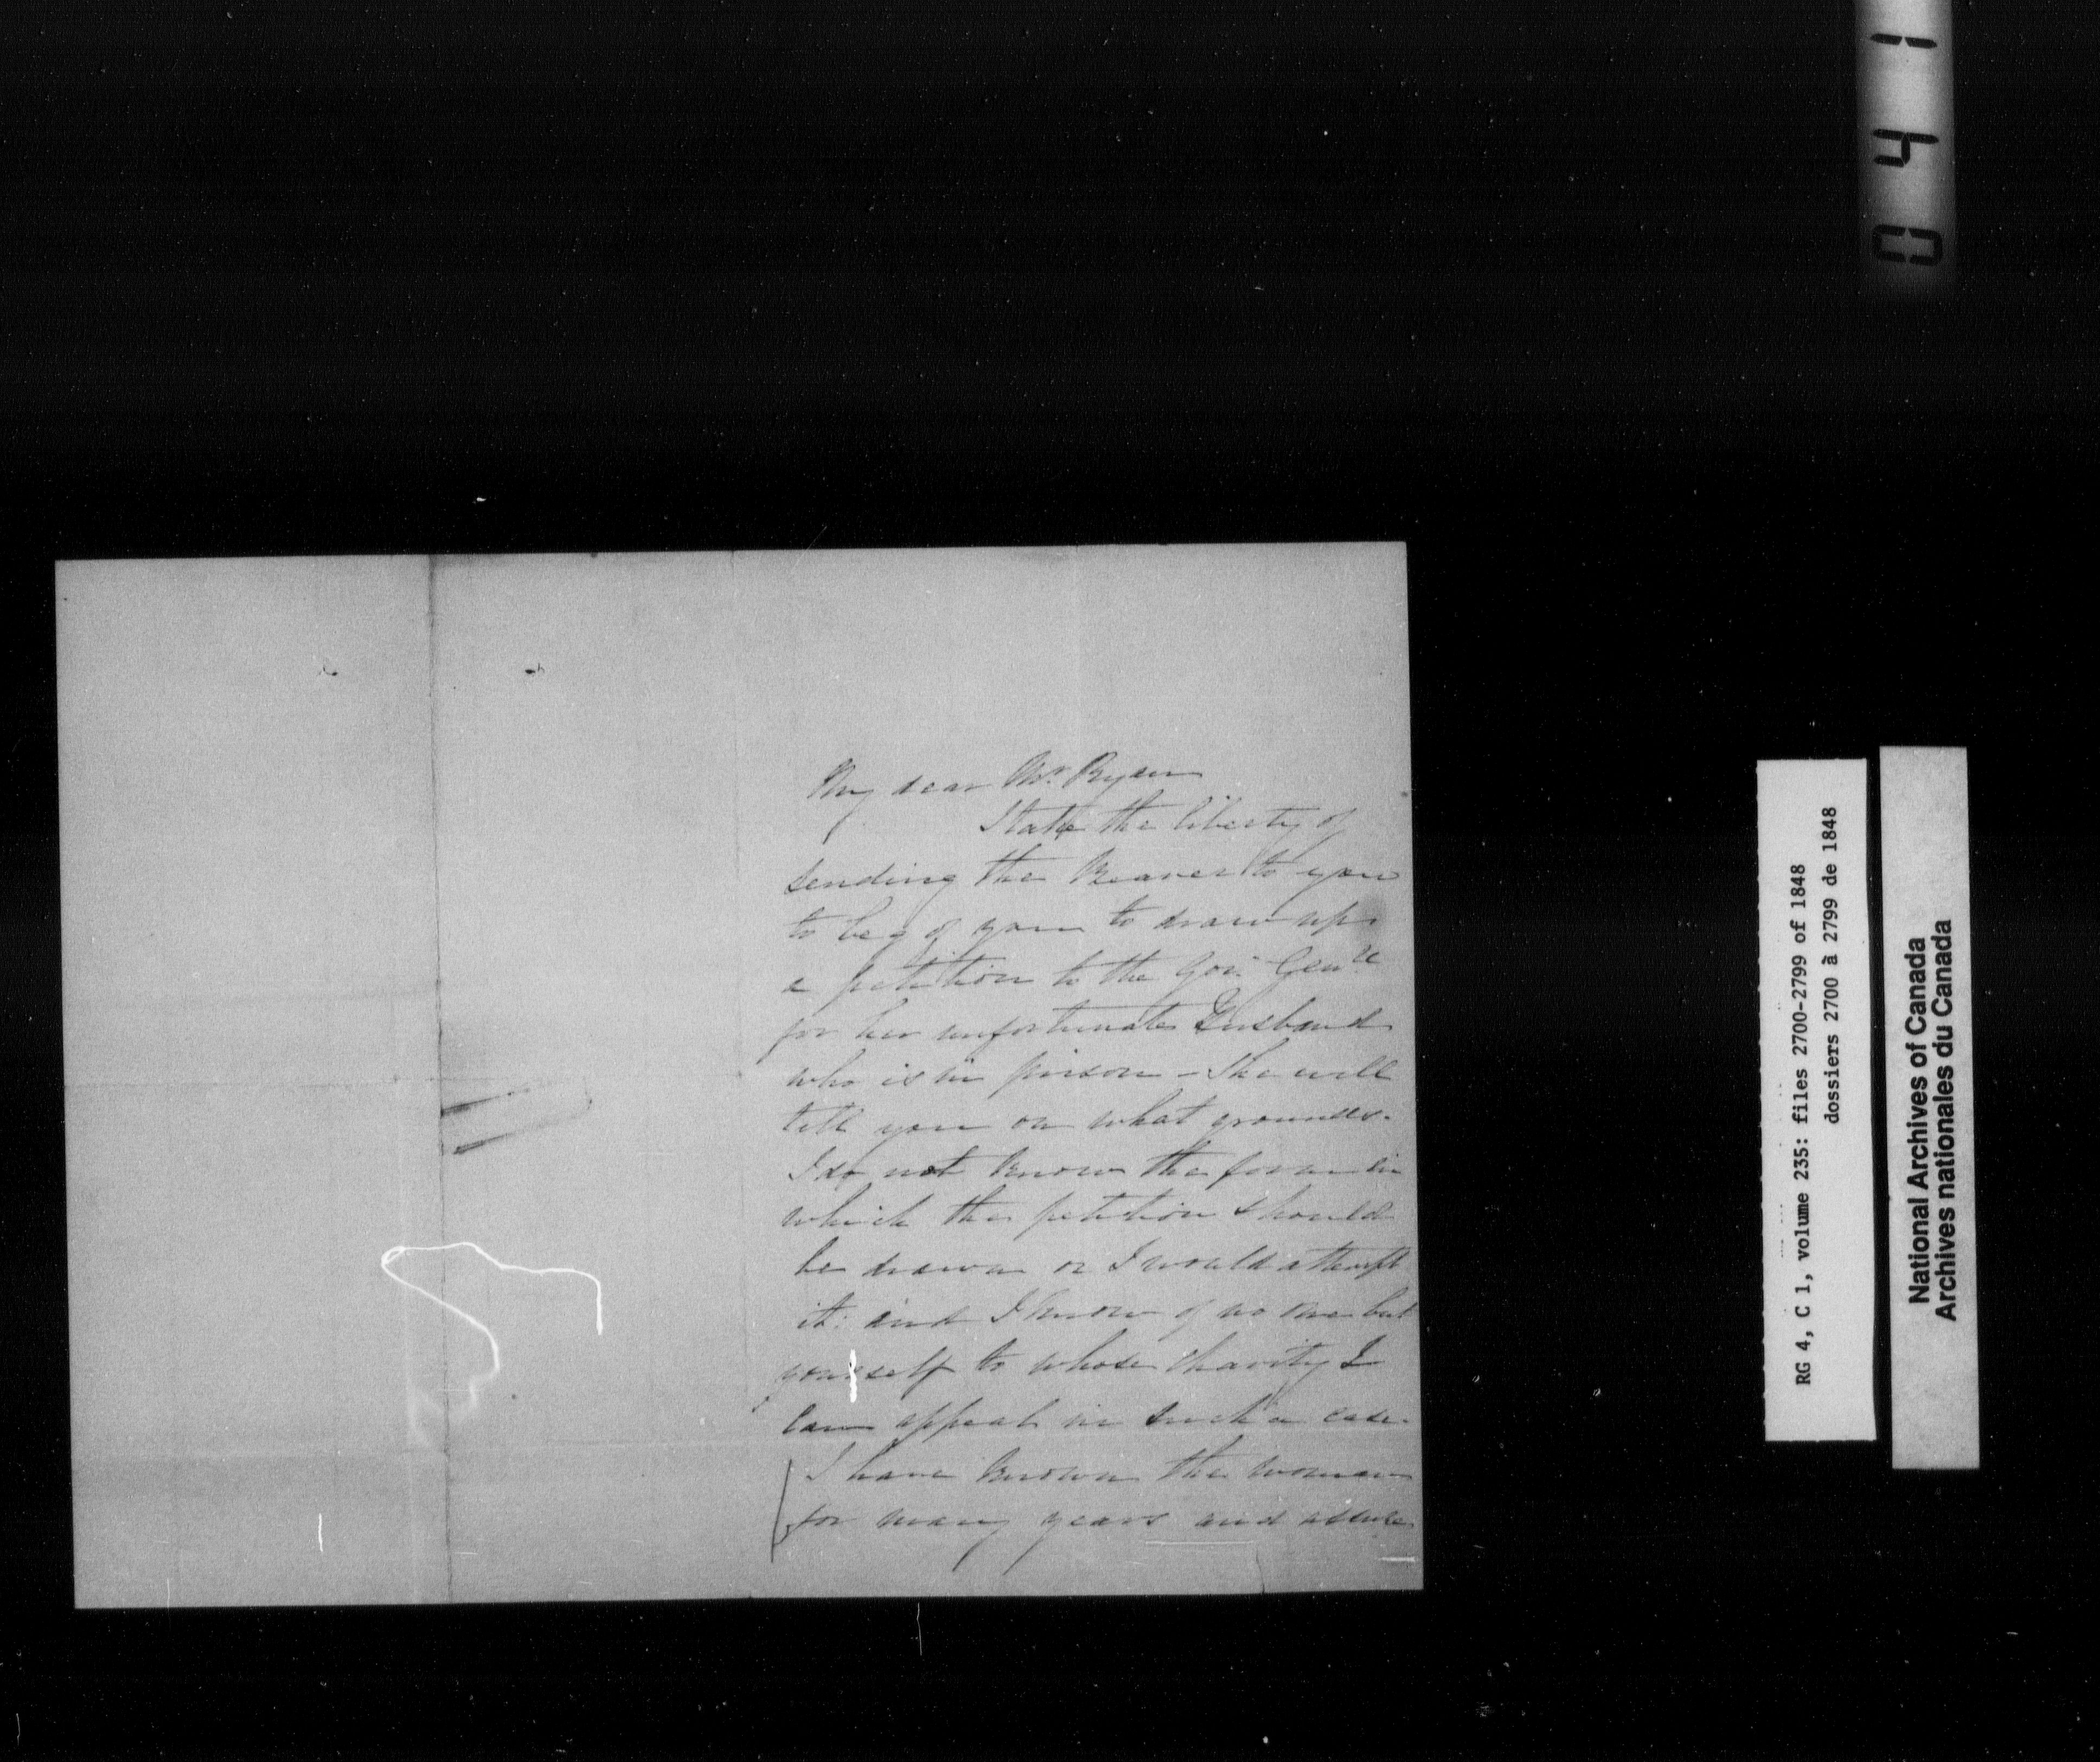 My dear Mr. Ryan
I take the liberty of
sending the Bearer to you
to beg of you to draw up
a petition to the Gov. Genrl
for her unfortunate Husband
who is in prison - She will
tell you on what grounds.
I do not know the form in
which the petition should
be drawn or I would attempt
it: and I know of no one but
yourself to whose charity I
can appeal in such a case.
I have known the woman
for many years and assure
041
RG 4, C 1, volume 235: files 2700-2799 of 1848
dossiers 2700 à 2799 de 1848
National Archives of Canada
Archives nationales du Canada